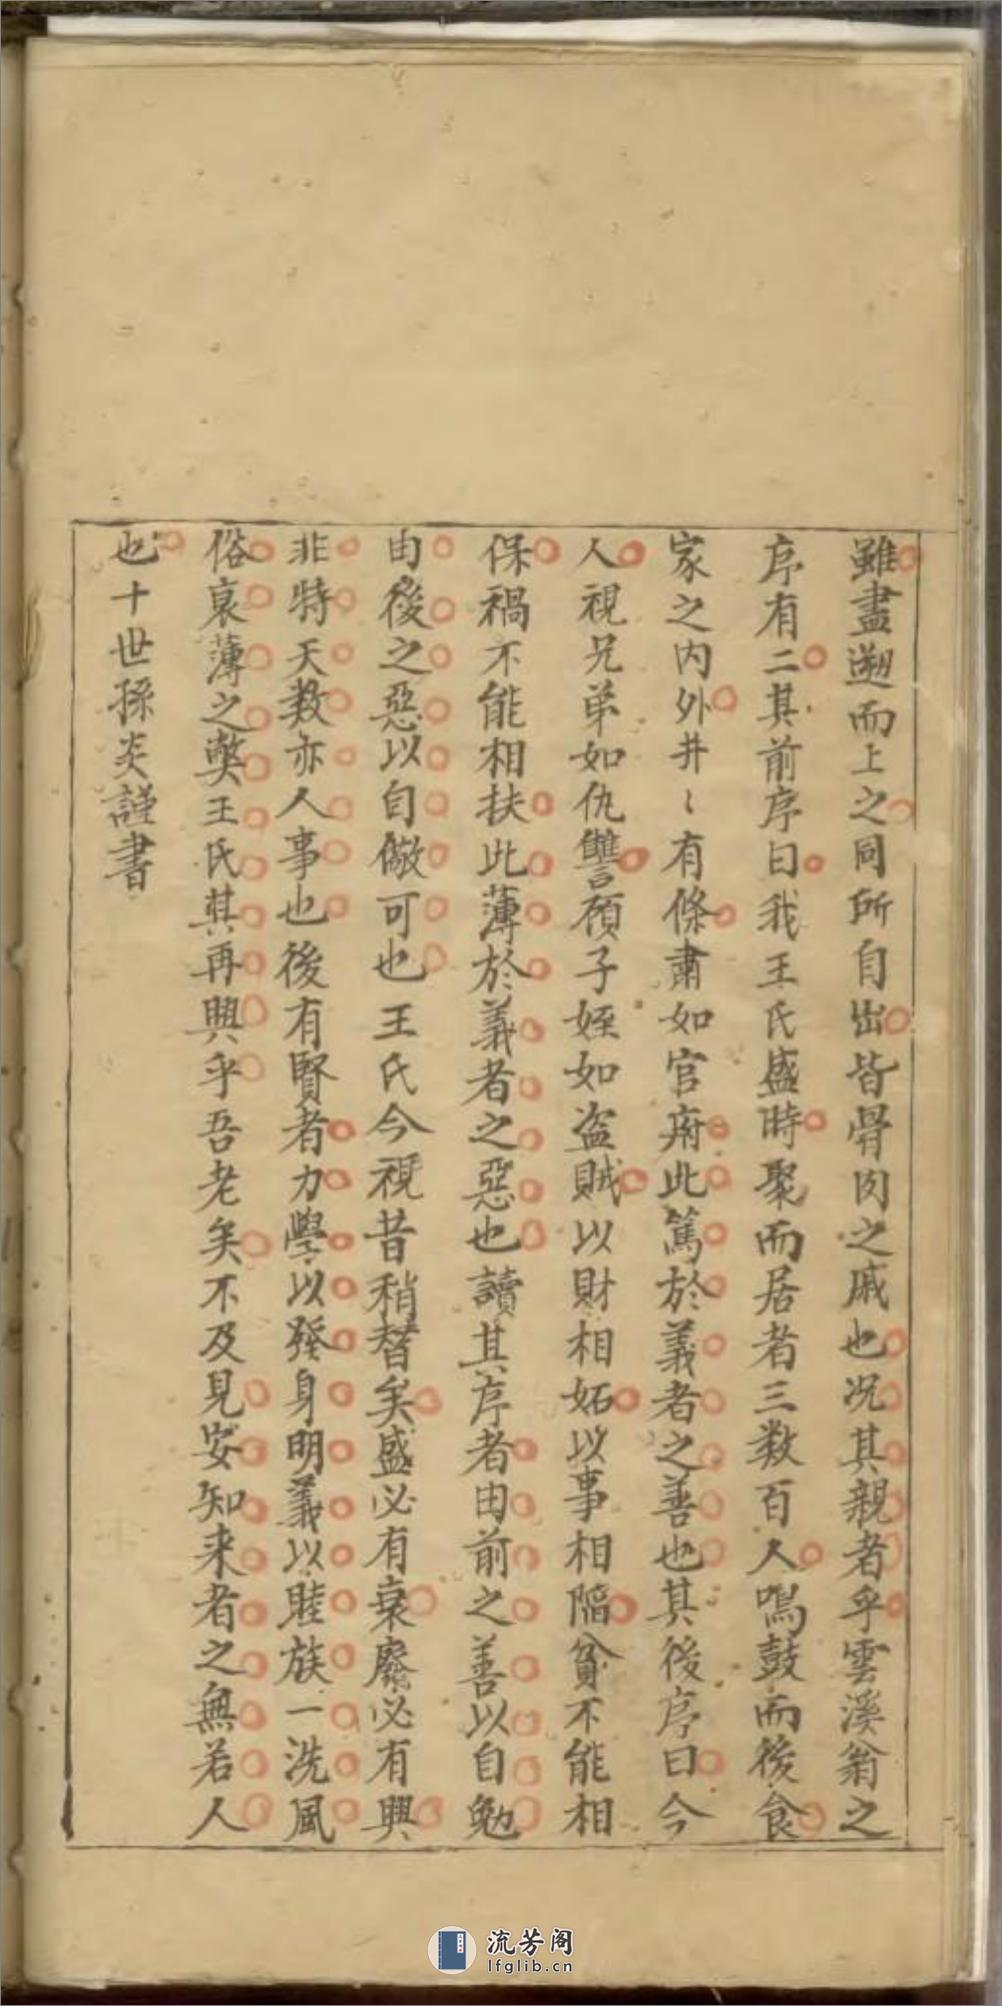 雖盡遡而上之同所自出皆骨肉之戚也况其親者乎雲溪翁之
序有二其前序曰我王氏盛時聚而居者三数百人鳴鼓而後食
家之内外井〻有條肅如官府此篤於義者之善也其後序曰今
人視兄弟如仇讐顧子姪如盗賊以財相妬以事相陥貧不能相
保禍不能相扶此薄於義者之惡也讀其序者由前之善以自勉
由後之惡以自儆可也王氏今視昔稍替矣盛必有衰廢必有興
非特天数亦人事也後有賢者力學以發身明義以睦族一洗風
俗衰薄之獘王氏其再興乎吾老矣不及見安知来者之無若人
也十世孫炎謹書
流芳阁
lfglib.cn